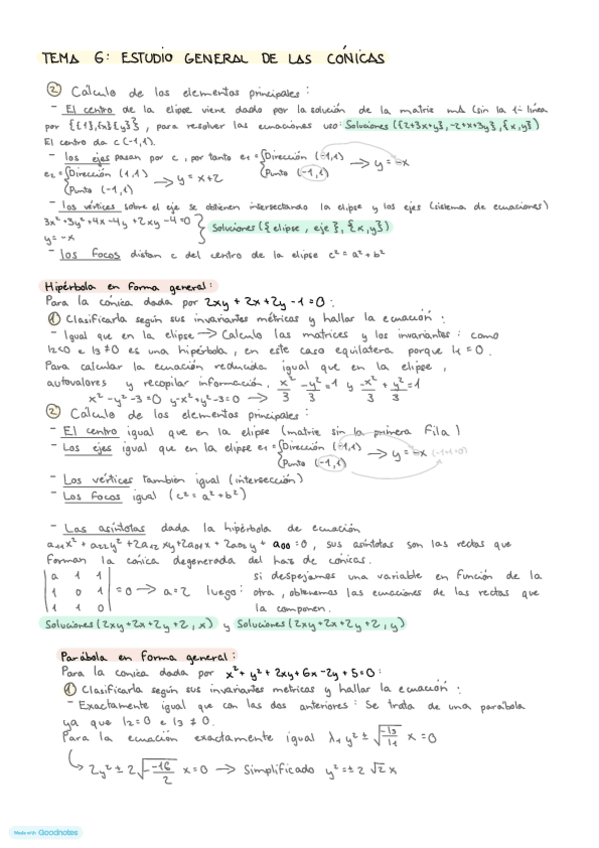 TEMA 6: ESTUDIO GENERAL DE LAS CÓNICAS
② Cálculo de los elementos principales:
- El centro de la elipse viene dado por la solución de la matriz mA (sin la 1ª línea
por {{1},{x}{y}}, para resolver las ecuaciones uso: Soluciones({2+3x+y, -2+x+3y}, {x,y})
El centro da c(-1,1).
- los ejes pasan por c, por tanto e1 = { Dirección (-1,1) Punto (-1,1) → y = -x
e2 = { Dirección (1,1) Punto (-1,1) → y = x+2
- los vértices sobre el eje se obtienen intersectando la elipse y los ejes (sistema de ecuaciones)
3x²+3y²+4x-4y+2xy-4=0
y=-x } Soluciones({elipse, eje}, {x,y})
- los focos distan c del centro de la elipse c² = a²+b²
Hipérbola en forma general:
Para la cónica dada por 2xy+2x+2y-1=0:
① Clasificarla según sus invariantes métricas y hallar la ecuación:
- Igual que en la elipse → Calculo las matrices y los invariantes: como
I2<0 e I3≠0 es una hipérbola, en este caso equilatera porque I1=0.
Para calcular la ecuación reducida igual que en la elipse,
autovalores y recopilar información. x²/3 - y²/3 = 1 y -x²/3 + y²/3 = 1
x²-y²-3=0 y -x²+y²-3=0 →
② Cálculo de los elementos principales:
- El centro igual que en la elipse (matriz sin la primera fila)
- Los ejes igual que en la elipse e1 = { Dirección (-1,1) Punto (-1,1) → y = -x (-1+1=0)
- Los vértices también igual (intersección)
- Los focos igual (c² = a²+b²)
- Las asíntotas dada la hipérbola de ecuación
a11x² + a22y² + 2a12xy + 2a01x + 2a02y + a00 = 0, sus asíntotas son las rectas que
forman la cónica degenerada del haz de cónicas.
|a 1 1|
|1 0 1| = 0 → a=2 luego: si despejamos una variable en función de la
|1 1 0| otra, obtenemos las ecuaciones de las rectas que
la componen.
Soluciones(2xy+2x+2y+2, x) y Soluciones(2xy+2x+2y+2, y)
Parábola en forma general:
Para la conica dada por x²+y²+2xy+6x-2y+5=0:
① Clasificarla según sus invariantes metricas y hallar la ecuación:
- Exactamente igual que con las dos anteriores: Se trata de una parábola
ya que I2=0 e I3≠0.
Para la ecuación exactamente igual λ1 y² ± √(-I3/I1) x = 0
↳ 2y² ± 2√(--16/2) x=0 → Simplificado y² = ± 2√2 x
Made with Goodnotes